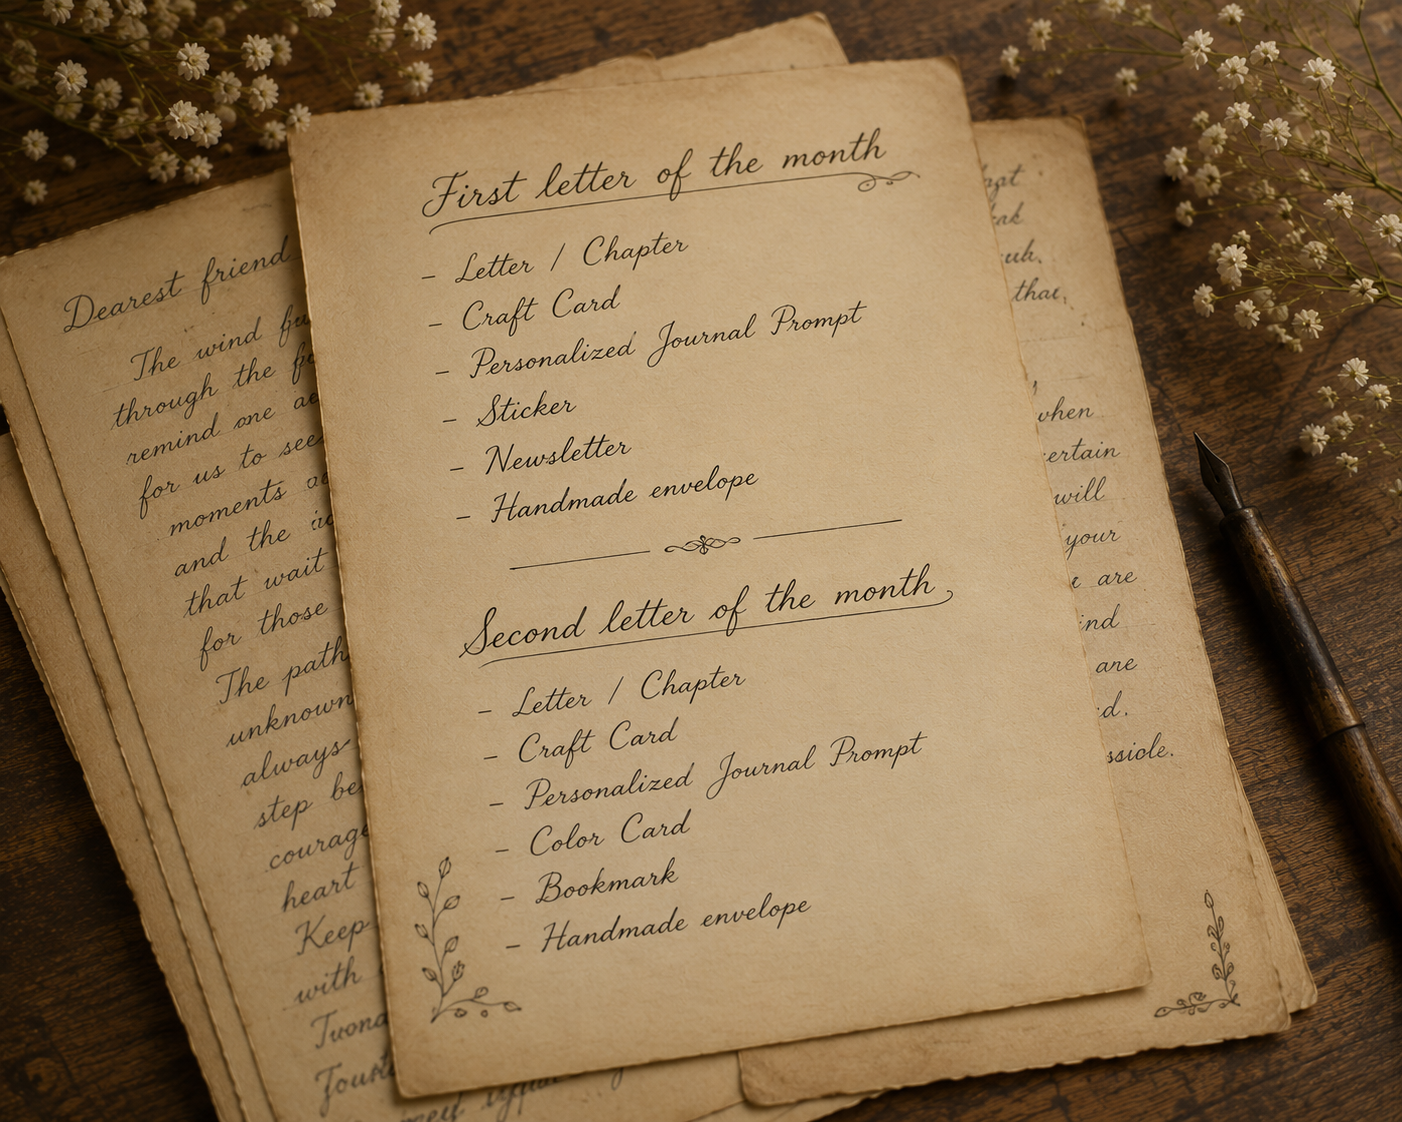 First letter of the month
- Letter / Chapter
- Craft Card
- Personalized Journal Prompt
- Sticker
- Newsletter
- Handmade envelope
Second letter of the month
- Letter / Chapter
- Craft Card
- Personalized Journal Prompt
- Color Card
- Bookmark
- Handmade envelope
Dearest friend
The wind
through the
remind one
for us to see
moments
and the
that wait
for those
The path
unknown
always
step
courage
heart
Keep
with
that
when
certain
will
your
are
are